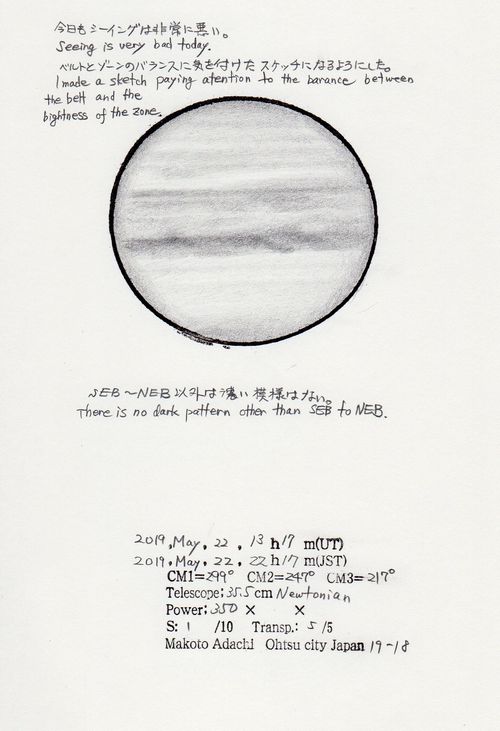 今日もシーイングは非常に悪い。
Seeing is very bad today.
ベルトとゾーンのバランスに気を付けたスケッチになるようにした。
I made a sketch paying atention to the barance between
the belt and the
bightness of the zone.
SEB～NEB以外は濃い模様はない。
There is no dark pattern other than SEB to NEB.
2019, May, 22, 13 h 17 m(UT)
2019, May, 22, 22 h 17 m(JST)
CM1=299° CM2=247° CM3=217°
Telescope; 35.5 cm Newtonian
Power; 350 × ×
S: 1 /10 Transp.: 5 /5
Makoto Adachi Ohtsu city Japan 19-18